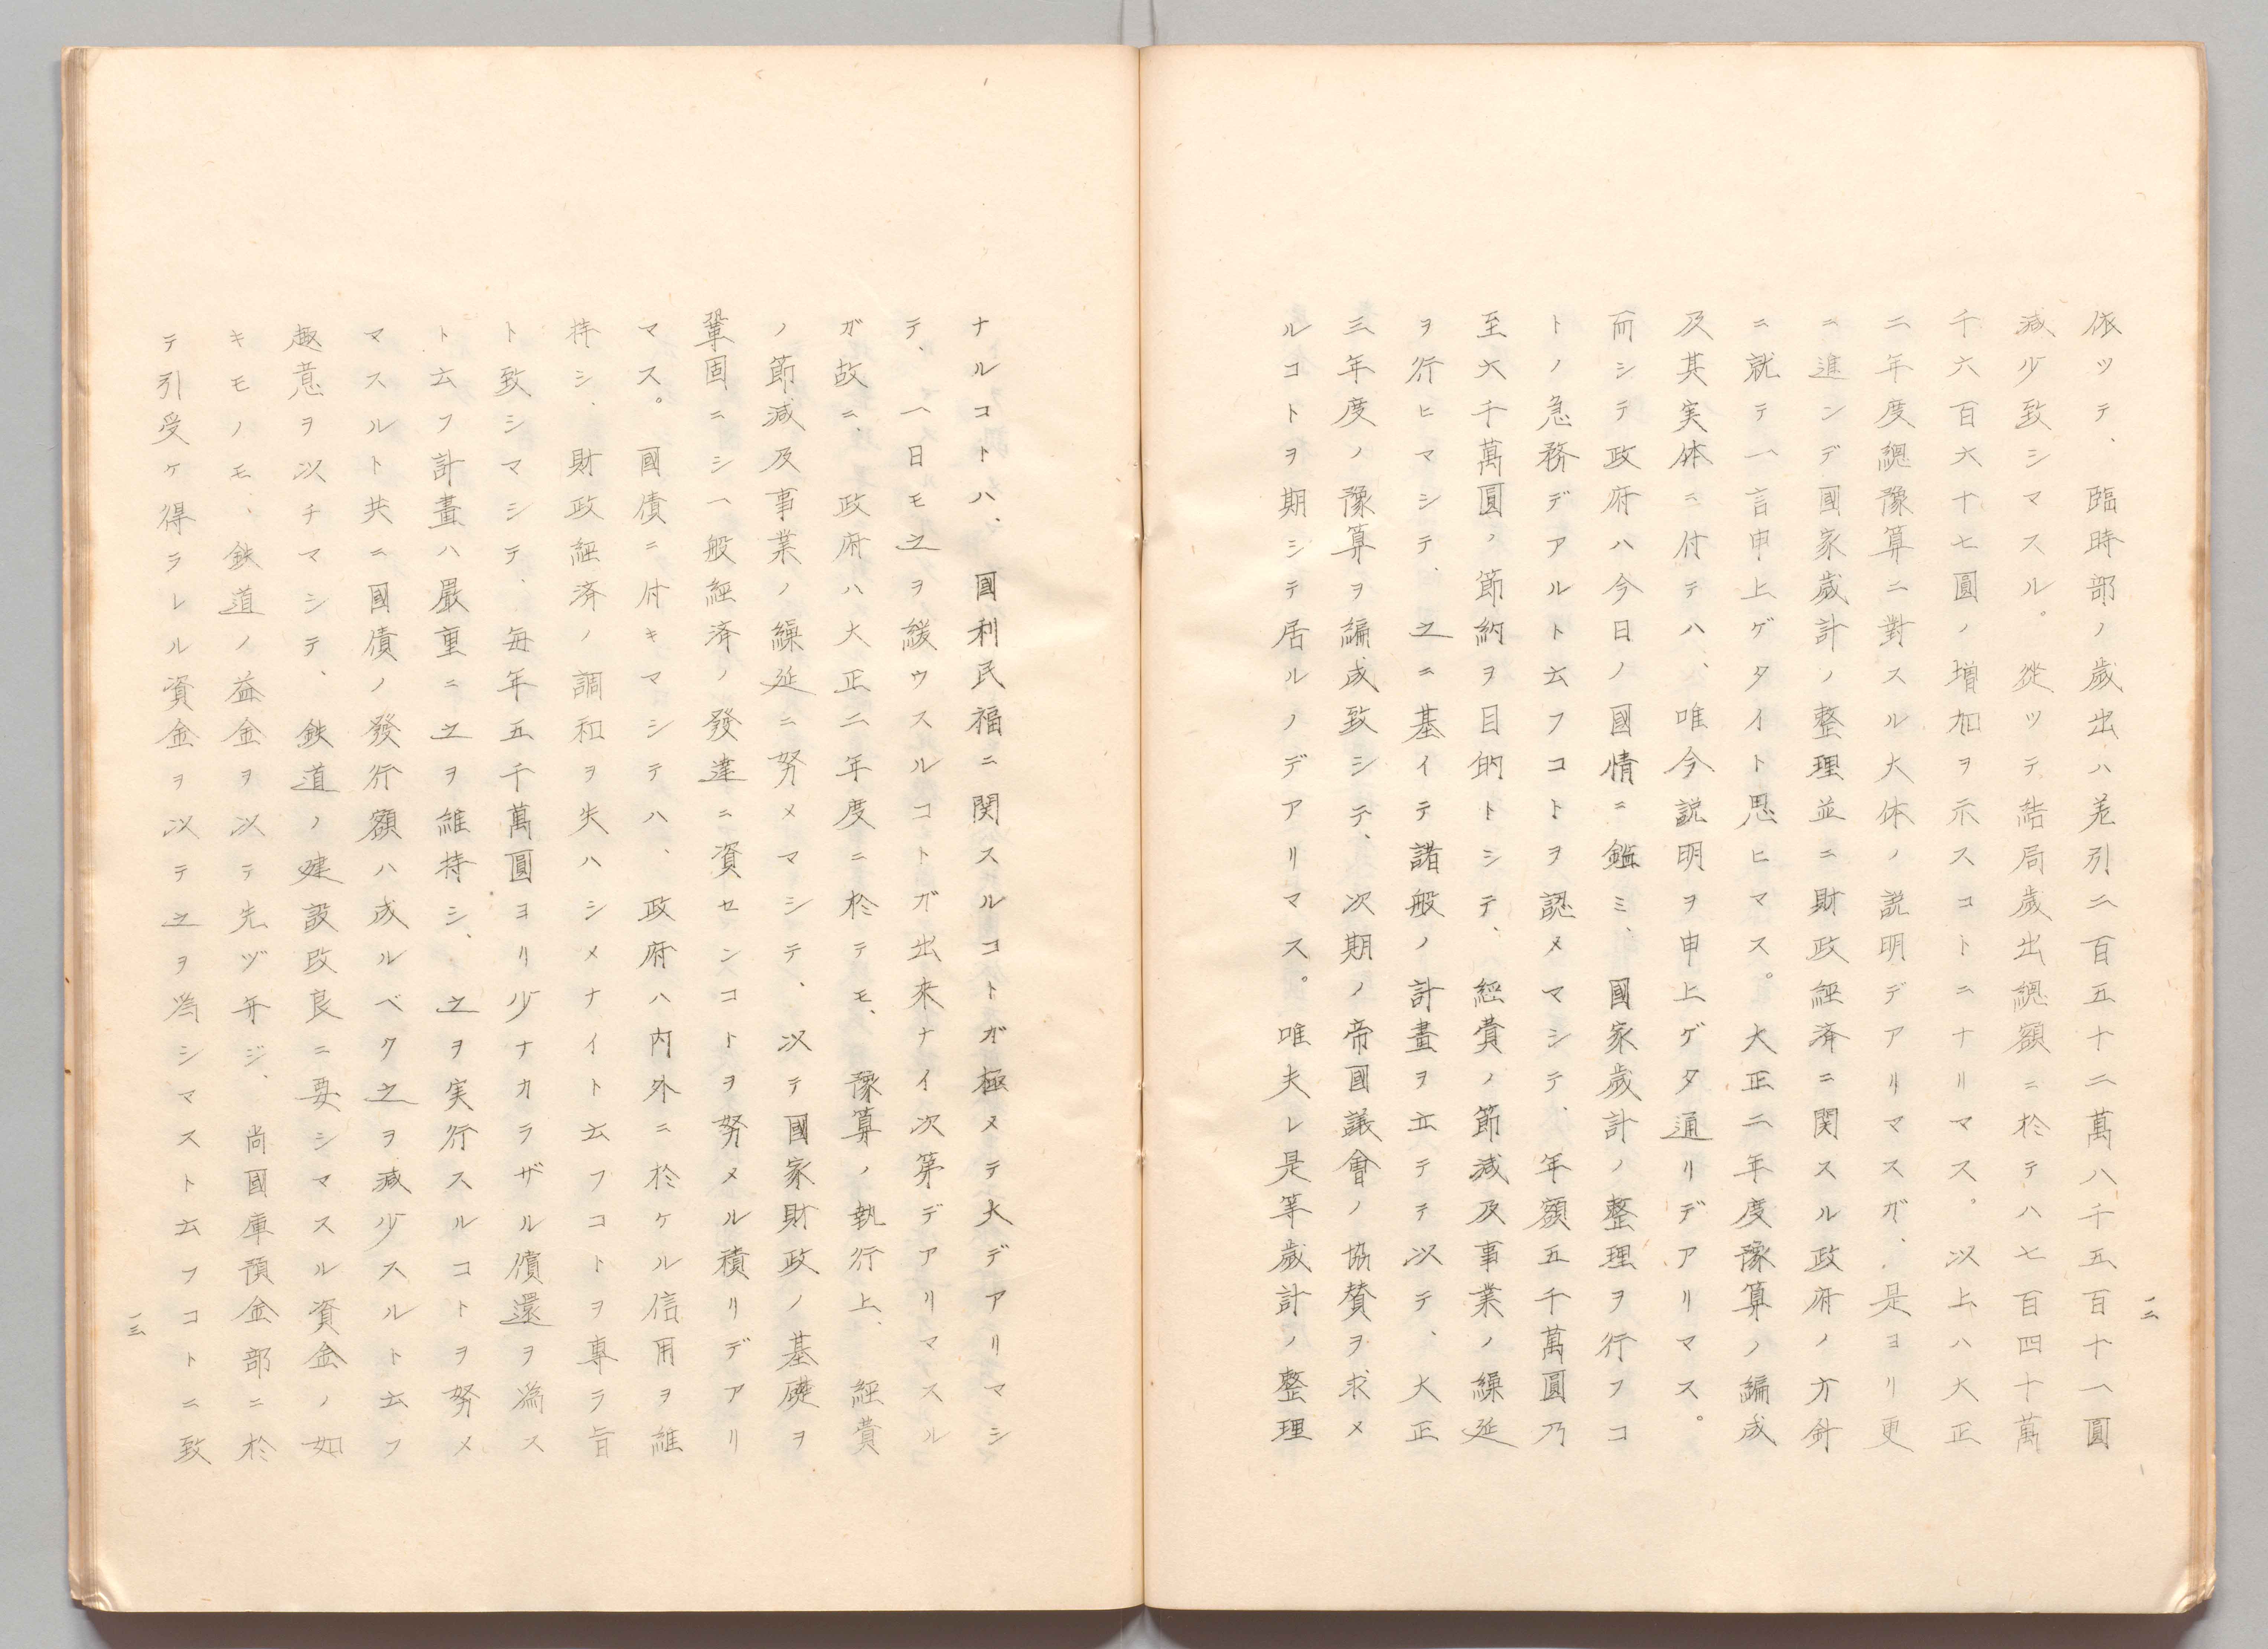 依ッテ、臨時部ノ歳出ハ差引二百五十二萬八千五百十一圓
減少致シマスル。從ッテ結局歳出總額ニ於テハ七百四十萬
千六百六十七圓ノ増加ヲ示スコトニナリマス。以上ハ大正
二年度總豫算ニ對スル大体ノ説明デアリマスガ、是ヨリ更
ニ進ンデ國家歳計ノ整理並ニ財政経済ニ関スル政府ノ方針
ニ就テ一言申上ゲタイト思ヒマス。大正二年度豫算ノ編成
及其実体ニ付テハ、唯今説明ヲ申上ゲタ通リデアリマス。
而シテ政府ハ今日ノ國情ニ鑑ミ、國家歳計ノ整理ヲ行フコ
トノ急務デアルト云フコトヲ認メマシテ、年額五千萬圓乃
至六千萬圓ノ節約ヲ目的トシテ、経費ノ節減及事業ノ繰延
ヲ行ヒマシテ、之ニ基イテ諸般ノ計畫ヲ立テテ以テ、大正
三年度ノ豫算ヲ編成致シテ、次期ノ帝國議會ノ協賛ヲ求メ
ルコトヲ期シテ居ルノデアリマス。唯夫レ是等歳計ノ整理
一二
ナルコトハ、國利民福ニ関スルコトガ極メテ大デアリマシ
テ、一日モ之ヲ緩ウスルコトガ出来ナイ次第デアリマスル
ガ故ニ、政府ハ大正二年度ニ於テモ、豫算ノ執行上、経費
ノ節減及事業ノ繰延ニ努メマシテ、以テ國家財政ノ基礎ヲ
鞏固ニシ一般経済ノ發達ニ資センコトヲ努メル積リデアリ
マス。國債ニ付キマシテハ、政府ハ内外ニ於ケル信用ヲ維
持シ、財政経済ノ調和ヲ失ハシメナイト云フコトヲ専ラ旨
ト致シマシテ、毎年五千萬圓ヨリ少ナカラザル償還ヲ為ス
ト云フ計畫ハ嚴重ニ之ヲ維持シ、之ヲ実行スルコトヲ努メ
マスルト共ニ國債ノ發行額ハ成ルベク之ヲ減少スルト云フ
趣意ヲ以チマシテ、鉄道ノ建設改良ニ要シマスル資金ノ如
キモノモ、鉄道ノ益金ヲ以テ先ヅ弁ジ、尚國庫預金部ニ於
テ引受ケ得ラレル資金ヲ以テ之ヲ為シマスト云フコトニ致
一三